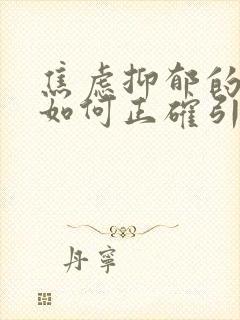 焦虑抑郁的
如何正確引
丹寧